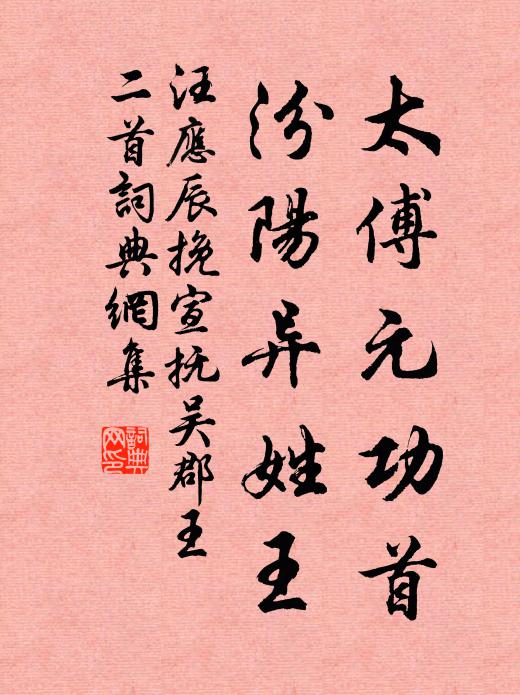 太傅元功首
汾陽异姓王
汪應辰挽宣抚吴郡王
二首詞典網集
詞典
网印